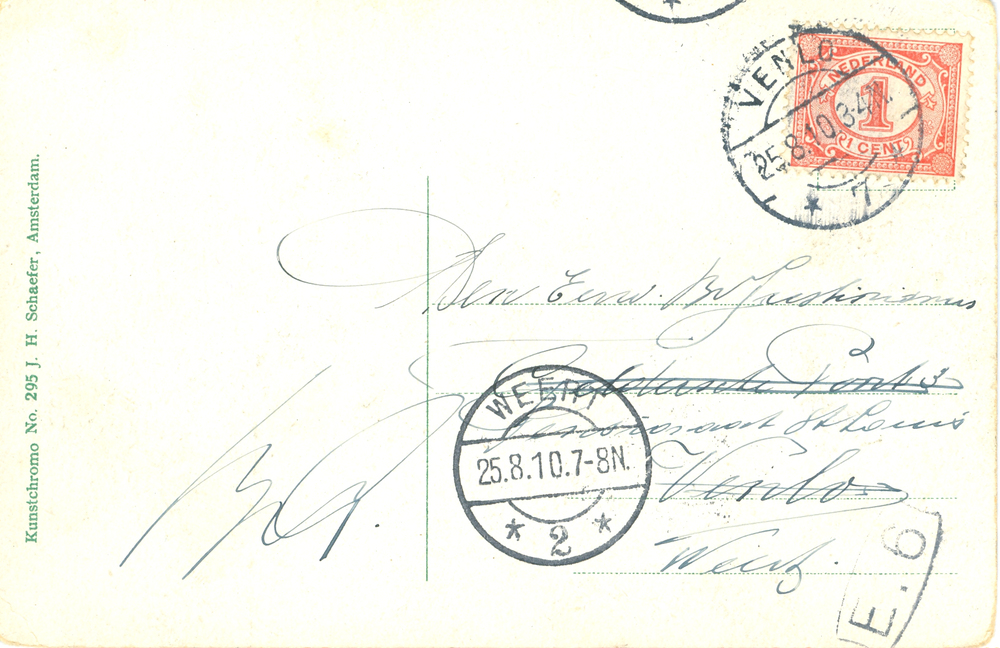 NEDERLAND
1
1 CENT
VENLO
25.8.10 3-4N.
7
Den Eerw. Br
Geldersche Poort 3
Pensionaat St Louis
Venlo
Weert
WEERT
25.8.10.7-8N.
2
E. 6
Kunstchromo No. 295 J. H. Schaefer, Amsterdam.